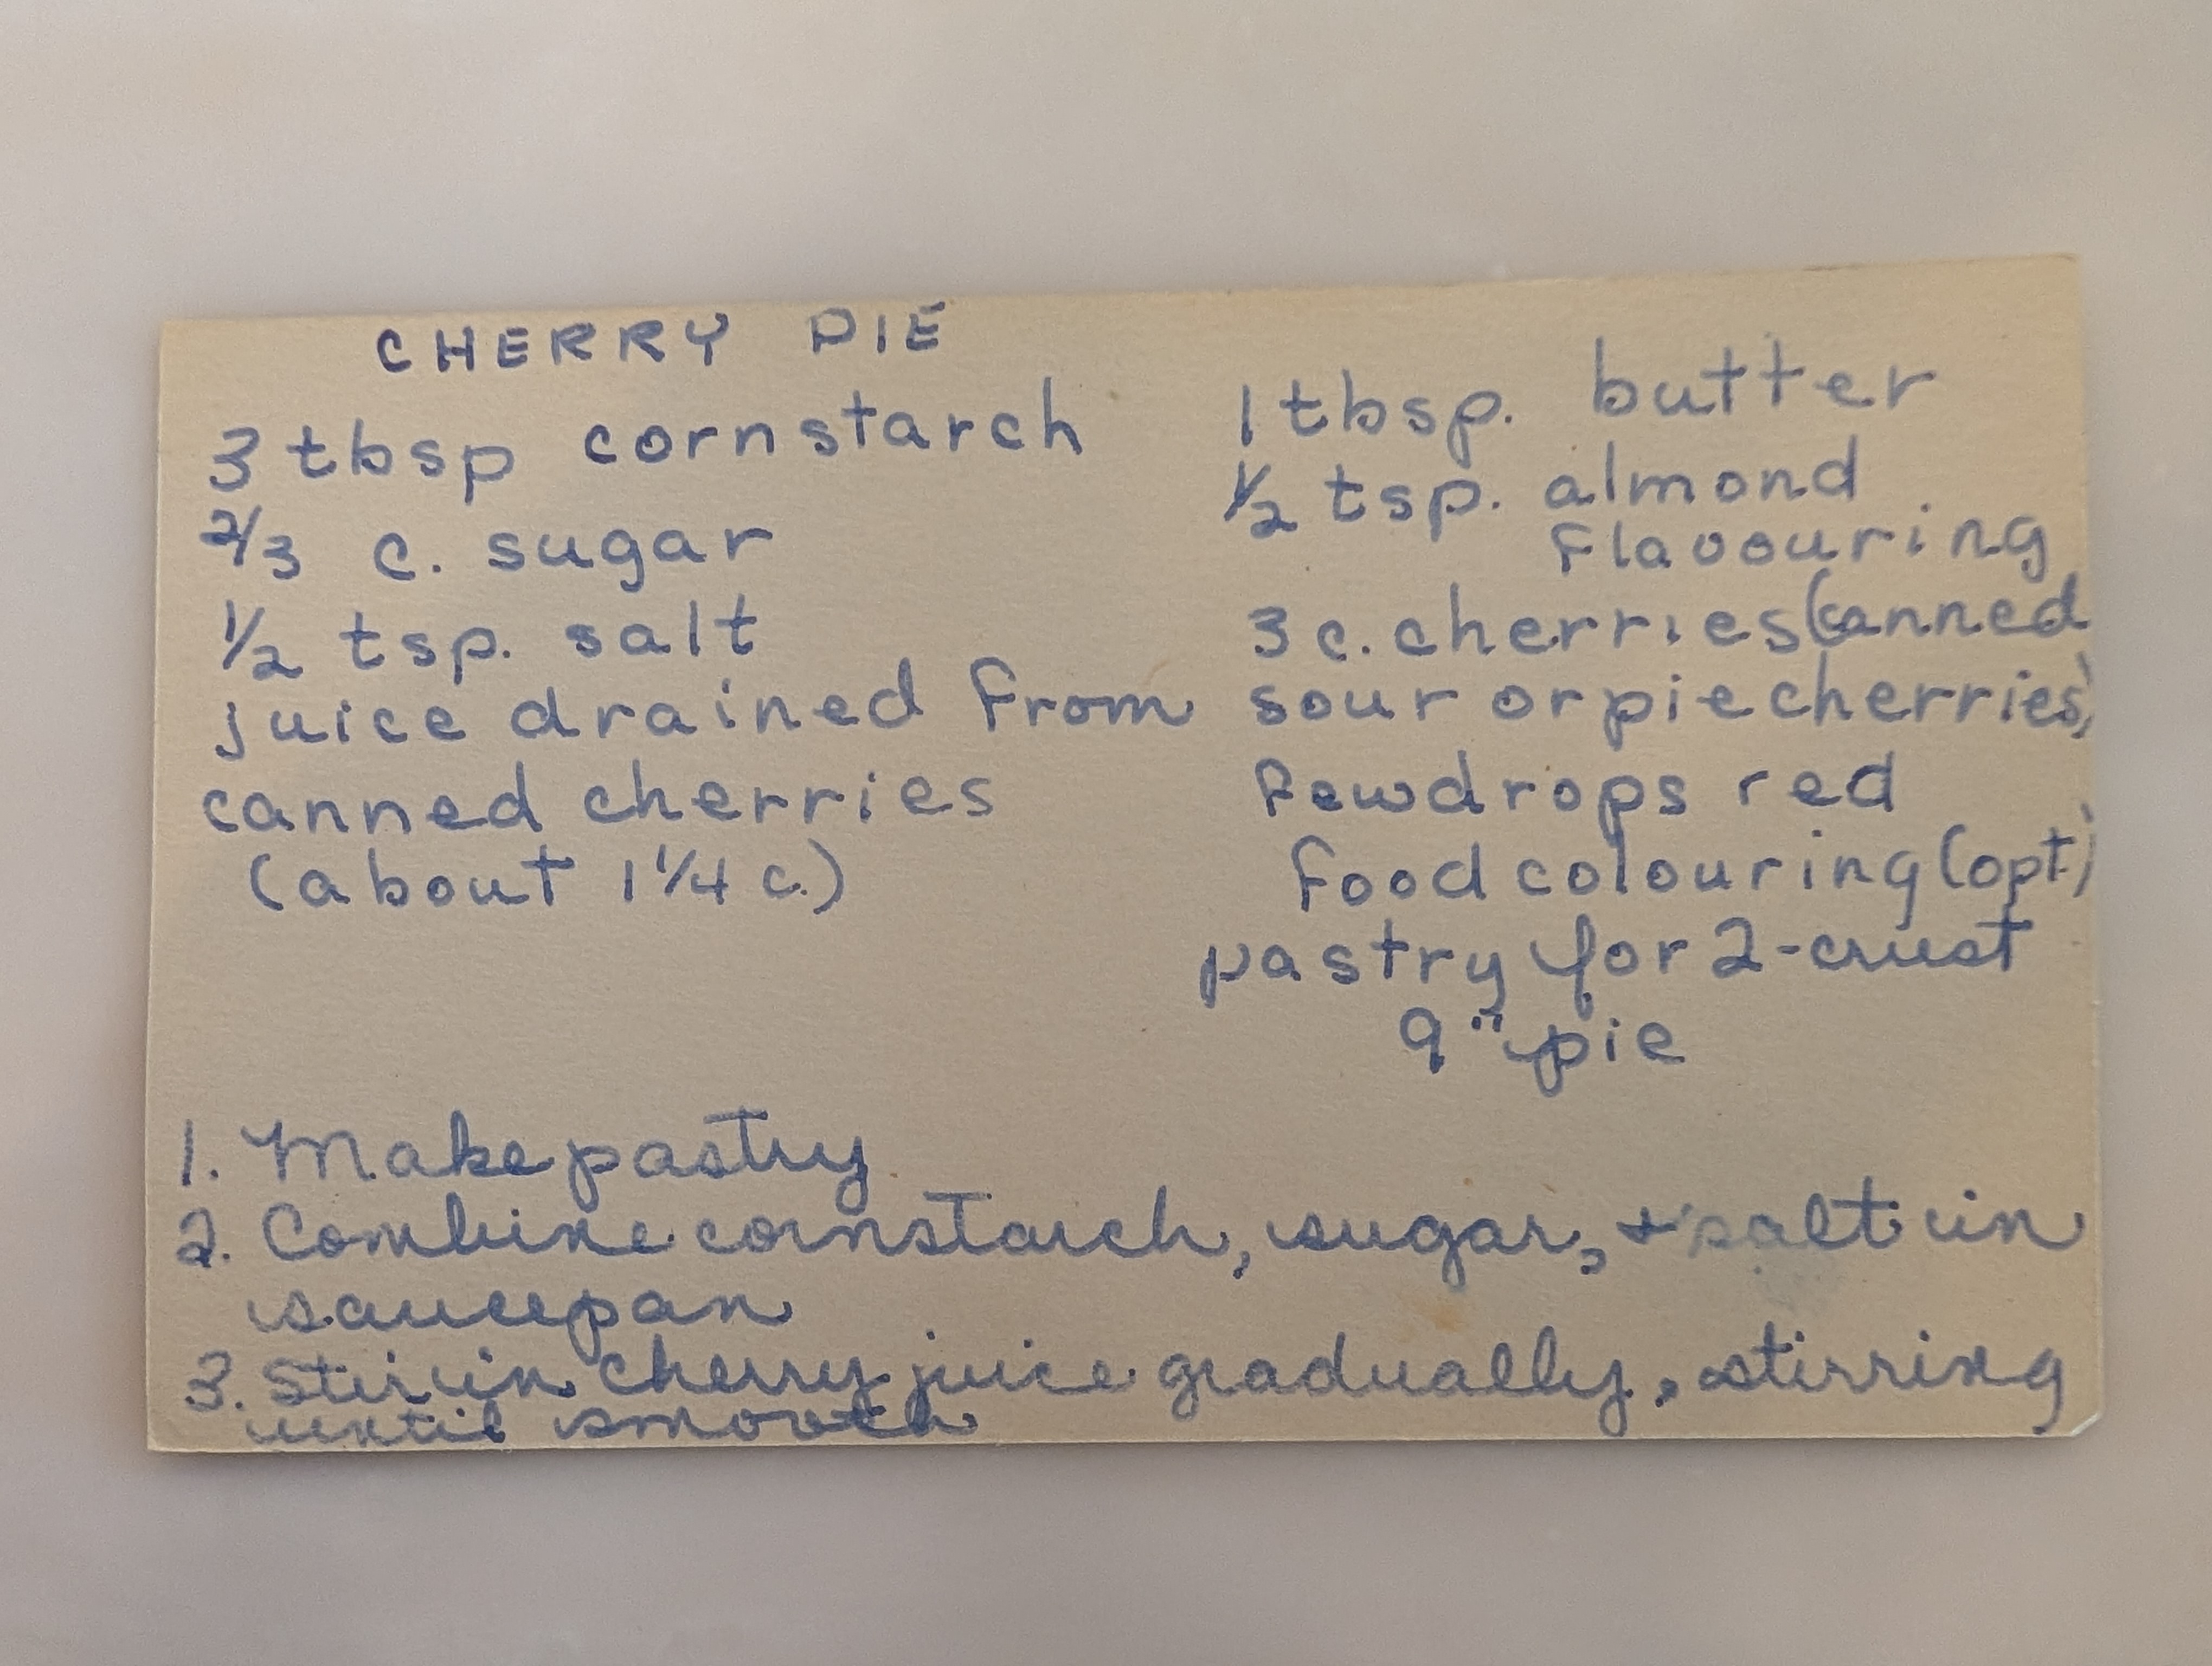 CHERRY PIE
3 tbsp cornstarch
2/3 c. sugar
1/2 tsp. salt
juice drained from
canned cherries
(about 1 1/4 c.)
1 tbsp. butter
1/2 tsp. almond
flavouring
3 c. cherries (canned
sour or pie cherries)
Few drops red
food colouring (opt.)
pastry for 2-crust
9" pie
1. Make pastry
2. Combine cornstarch, sugar, + salt in
saucepan
3. Stir in cherry juice gradually, stirring
until smooth